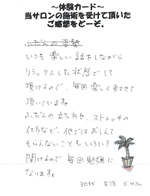 〜体験カード〜
当サロンの施術を受けて頂いた
ご感想をどうぞ。
いつも楽しい話をしながら
リラックスした状態でして
頂けるので、毎回楽しく来させて
頂いています。
ふだんの立ち方や、ストレッチの
仕方など、他ではおしえて
もらえないこともいろいろ
聞けるので毎回勉強に
なります。